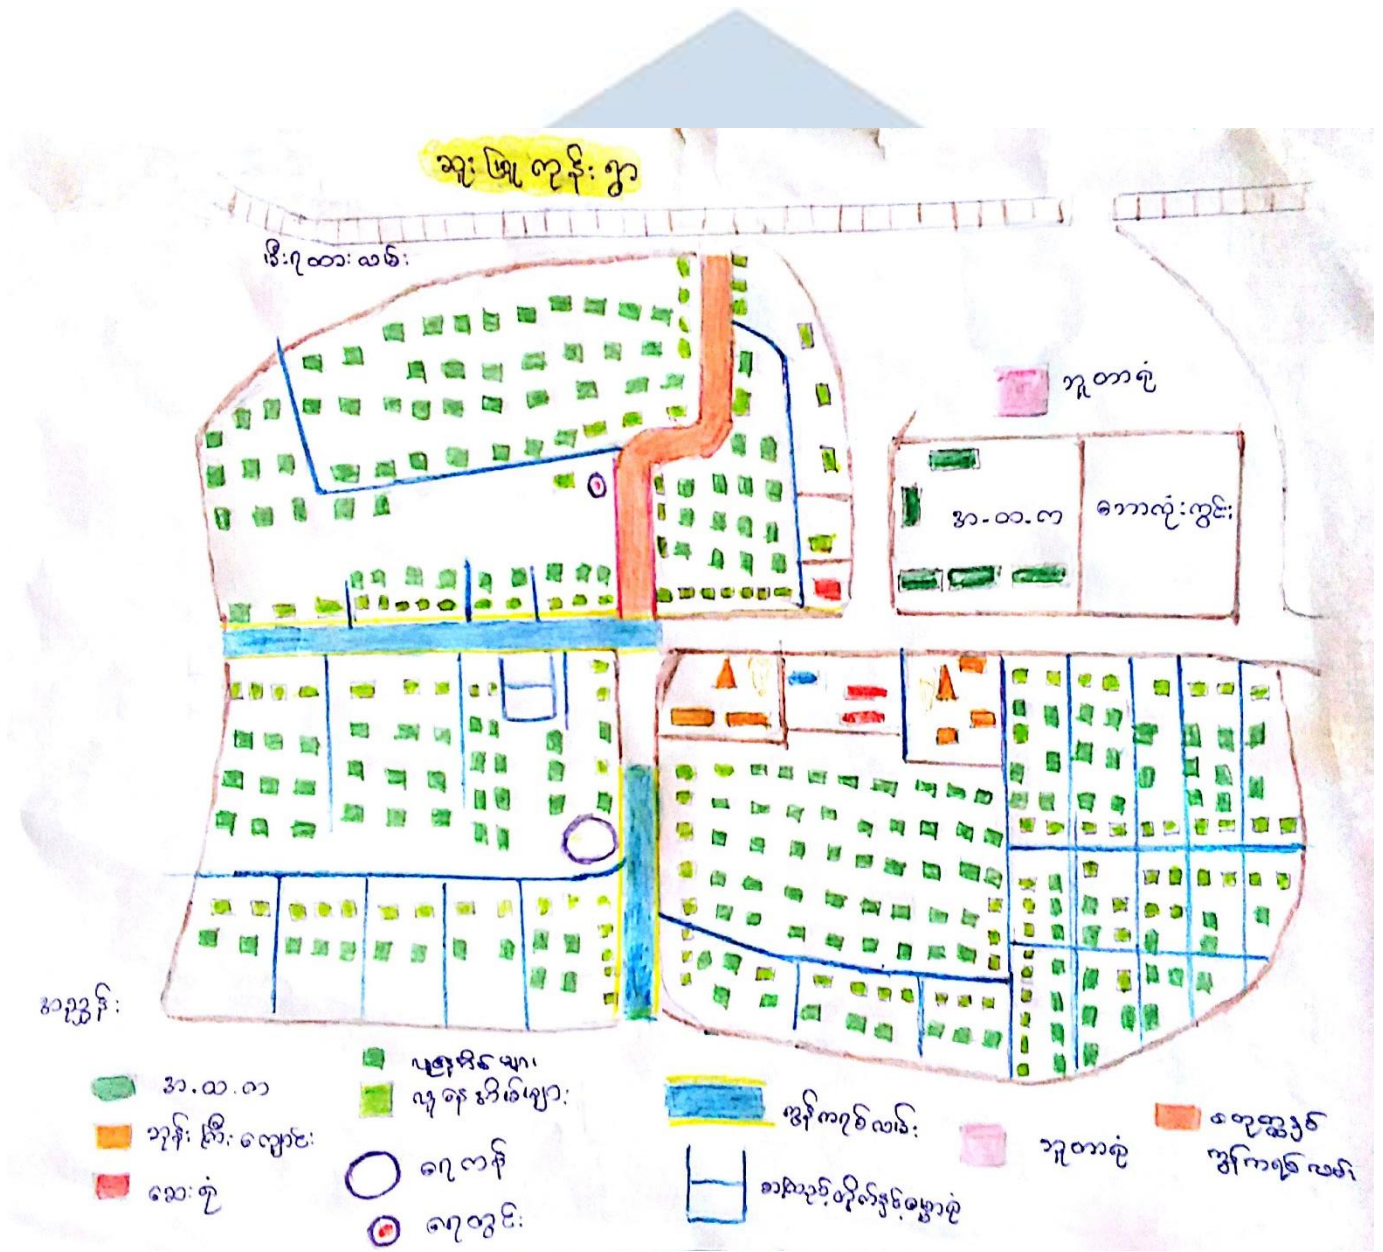 ဆူးဖြူကုန်းရွာ
မီးရထားလမ်း
ဘူတာရုံ
အ.ထ.က
ဘောလုံးကွင်း
အညွှန်း
အ.ထ.က
ဘုန်းကြီးကျောင်း
ဆေးရုံ
လူနေအိမ်များ
လူနေအိမ်များ
ရေကန်
ရေတွင်း
ကွန်ကရစ်လမ်း
စာကြည့်တိုက်နှင့်ဓမ္မာရုံ
ဘူတာရုံ
ကွန်ကရစ်လမ်း